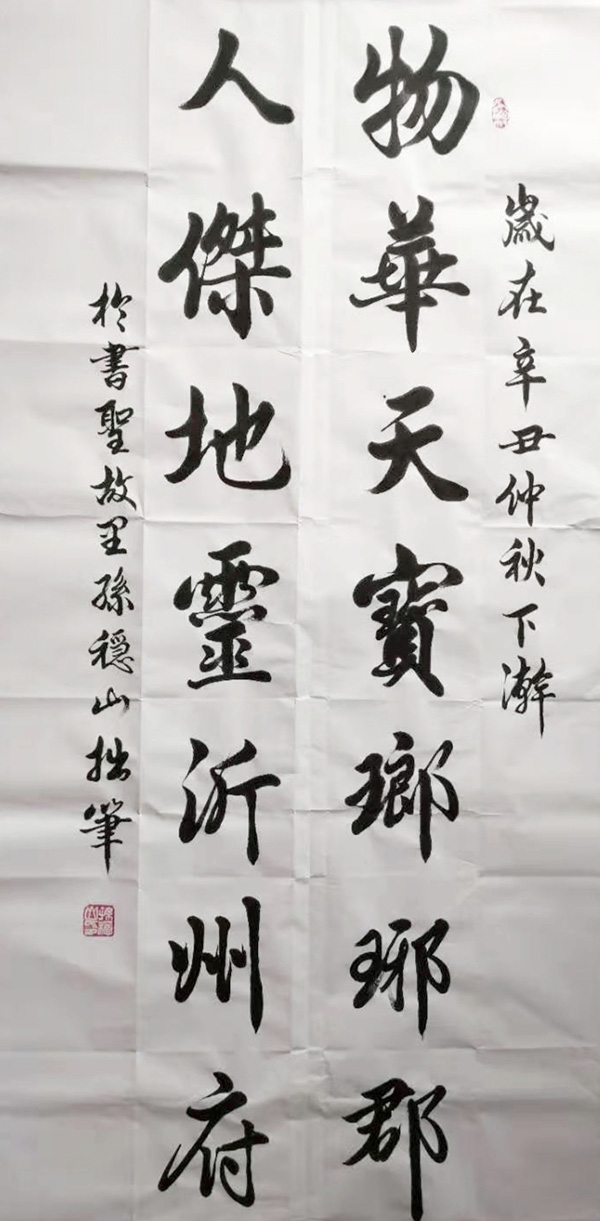 歲在辛丑仲秋下澣
物華天寶瑯琊郡
人傑地靈沂州府
於書聖故里孫穩山拙筆